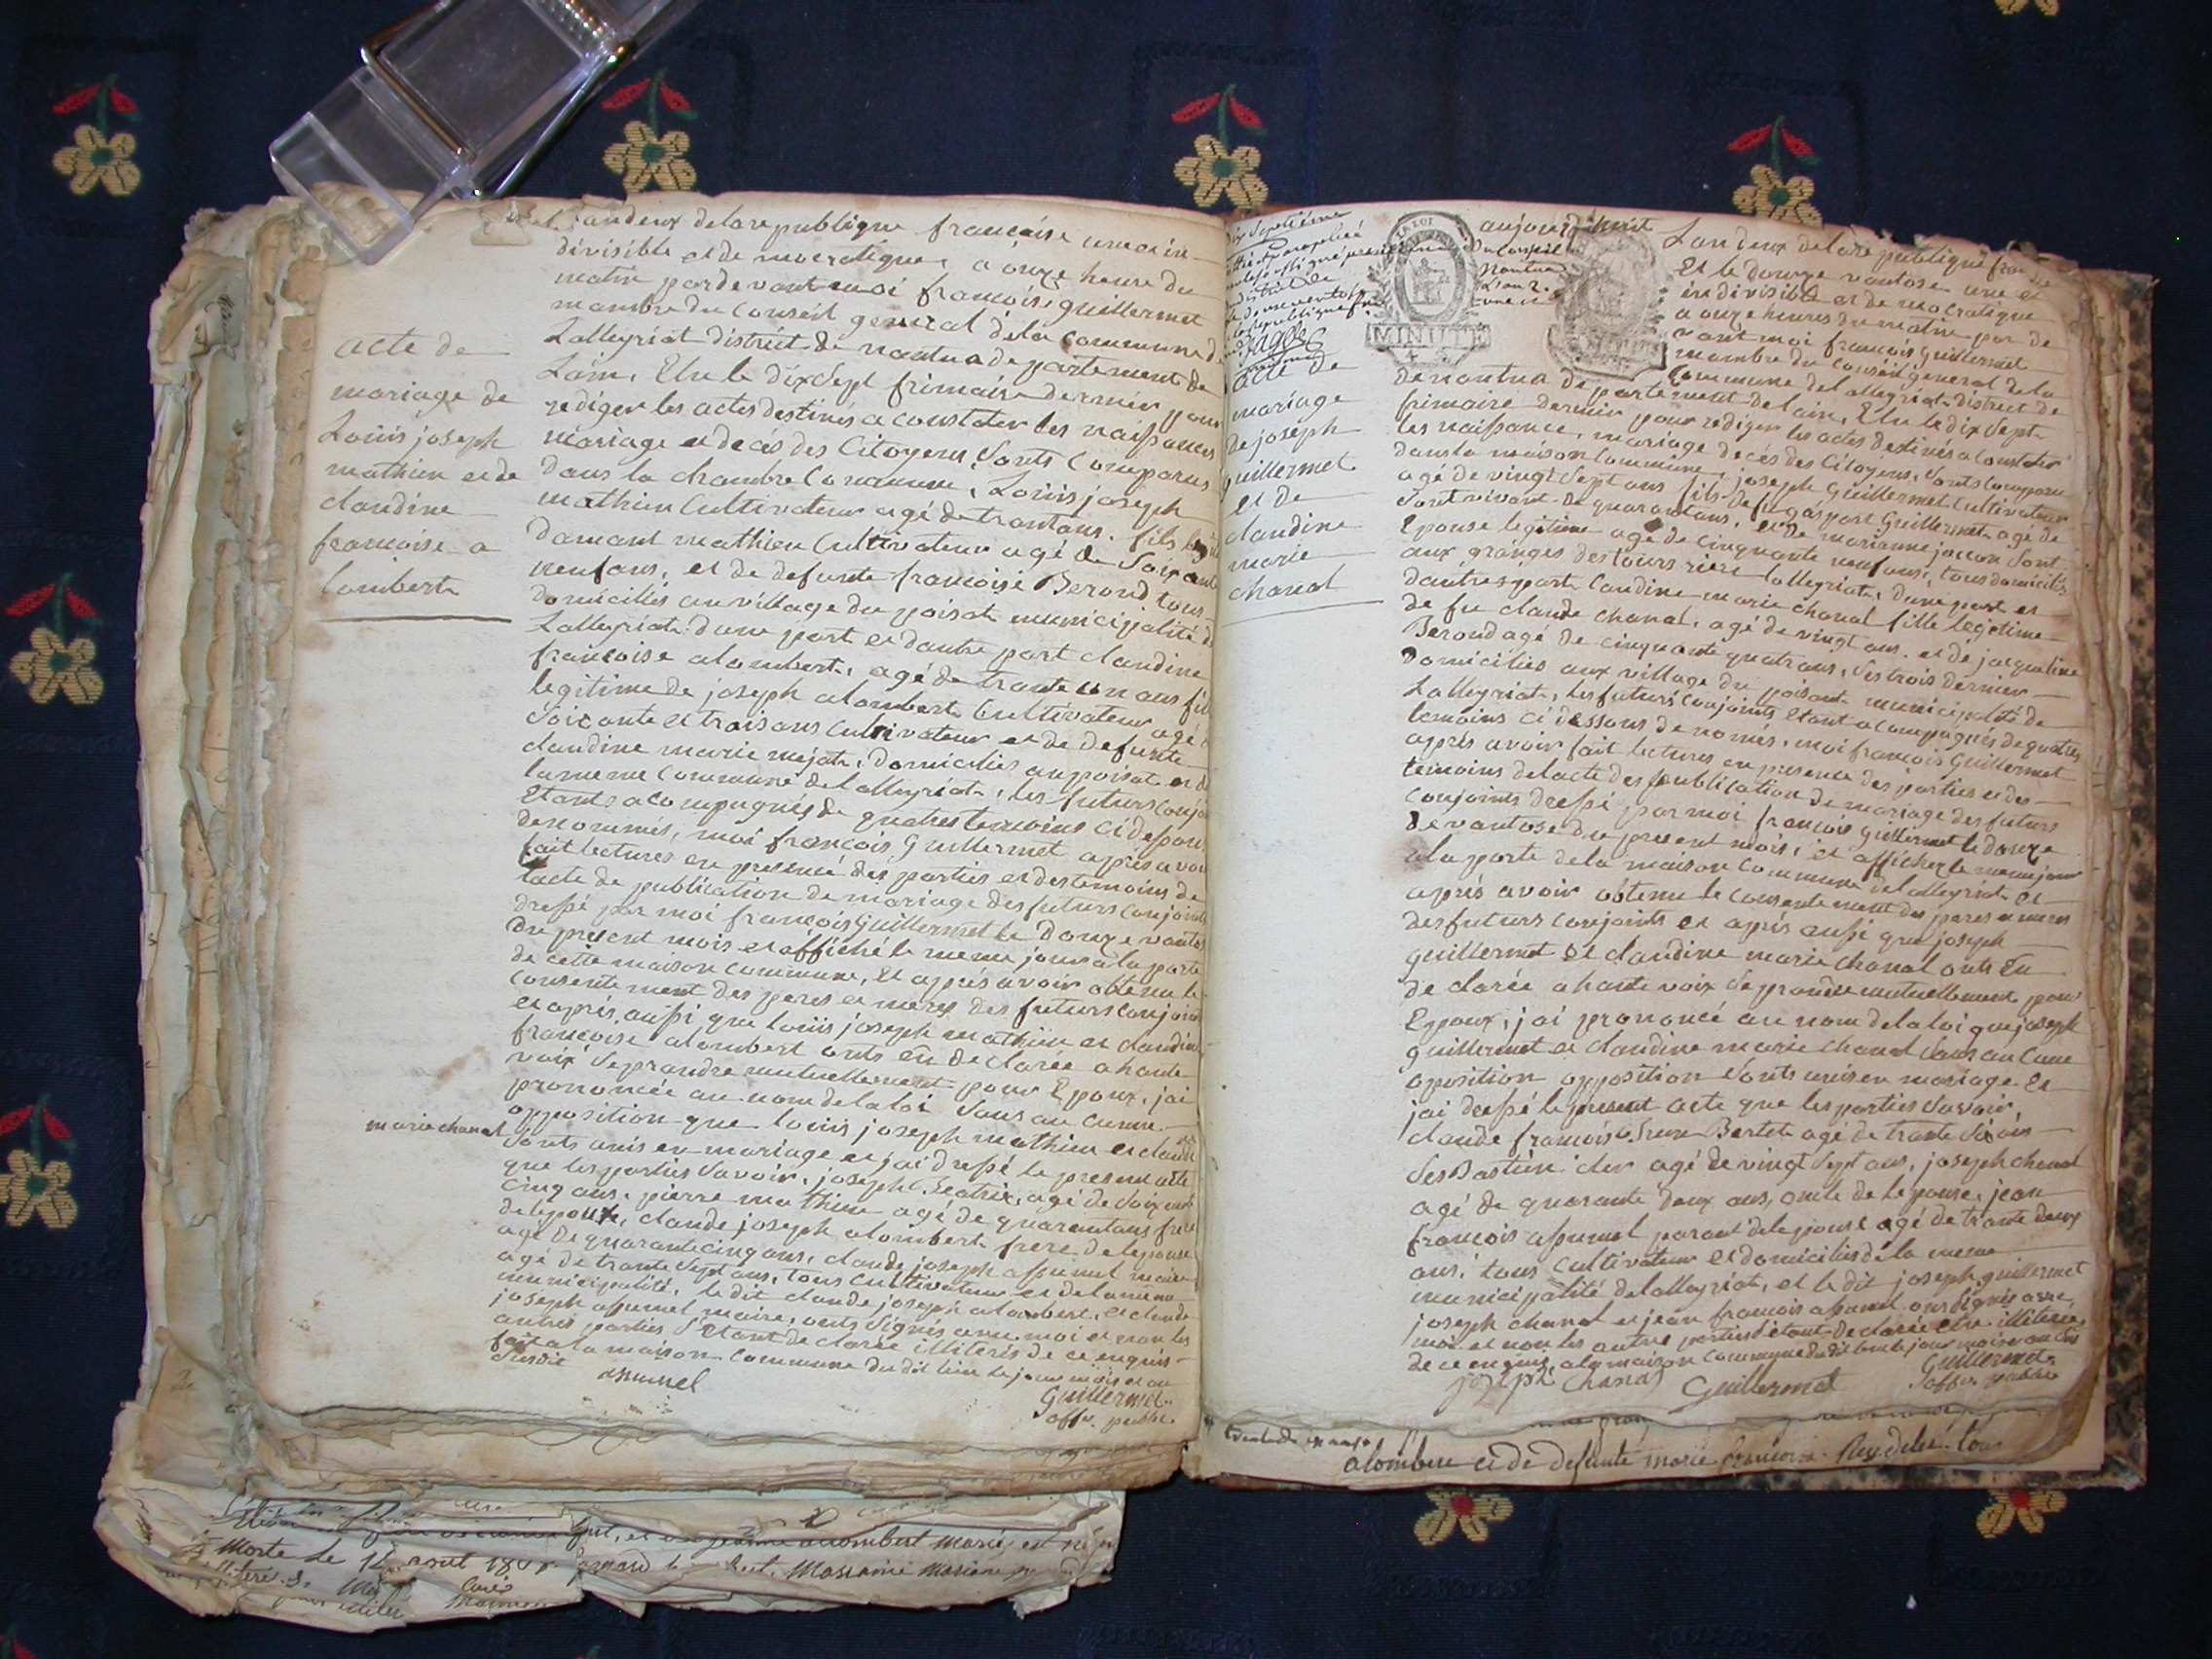 l'an deux de la republique francaise une et in-
divisible et de mocratique, a onze heure du
matin pardevant moi francois guillermet
mambre du conseil general de la commune de
Lalleyriat district de nantua departement de
Lain, Elu le dix sept frimaire dernier pour
rediger les actes destinés a constater les naissances
mariage et decés des Citoyens, Sonts Comparus
dans la chambre Commune, Loüis joseph
mathieu Cultivateur agé de trantans, fils legit
damant mathieu Cultivateur agé de Soixante
neufans, et de defunte francoise Berond tous
domiciliés au village du poisat municipalité de
Lalleyriat d'une part et dautre part claudine
francoise alombert, agé de trante un ans fille
legitime de joseph alombert Cultivateur agé
Soixante et trois ans Cultivateur et de defunte
claudine marie mejat, domiciliés au poisat et de
la meme commune de lalleyriat, les futurs conjoi
Etants acompagnés de quatres temoins ci dessous
denommés, moi francois Guillermet aprés avoir
fait lectures en presence des parties et des temoins de
lacte de publication de mariage des futurs conjoints
dressé par moi francois Guillermet le douze vantos
du present mois et affiché le meme jour a la porte
de cette maison commune, et aprés avoir obtenu le
consentement des peres et meres des futurs conjoins
et aprés aussi que loüis joseph mathieu et claudine
francoise alombert onts en declarée a haute
voix Se prandre mutuellement pour Epoux, jai
prononcée au nom de la loi Sans au cunne
opposition que loüis joseph mathieu et claudi
Sonts unis en mariage et jai dressé le present acte
que les parties Savoir, joseph Beatrix, agé de Soixante
Cinq ans, pierre mathieu agé de quarantans frere
de lepoux, claude joseph alombert frere de lepouse
agé de quarante cinq ans, claude joseph assumel maire
agé de trante Sept ans, tous cultivateur et de la meme
municipalité, le dit claude joseph alombert, et claude
joseph assumel maire, onts Signés avec moi et non les
autres parties Setant de clarée illiterés de ce enquis
fait a la maison commune du dit lieu le jour mois et an
Susdit
assumel
Guillermet
offr. public
acte de
mariage de
Loüis joseph
mathieu et de
claudine
francoise a
lombert
marie chanal
dix Septième
aujourd'huit
du conseil
nantua
L'an 2.
LA LOI
MINUTE
Lan deux de la republique fran
Et le douze vantose une et
indivisible et de mocratique
a onze heures du matin par de
vant moi francois guillermet
mambre du conseil general de la
commune de lalleyriat district de
de nantua departement de lain, Elu le dix Sept
frimaire dernier pour rediger les actes destinés a Constater
les naissance, mariage decés des Citoyens, Sonts comparu
dans la maison commune, joseph Guillermet Cultivateur
agé de vingt Sept ans fils de fu gaspart Guillermet agé de
Sont vivant de quarantans, et de marianne jaccon Sont
Epouse legitime agé de cinquante neuf ans, tous domiciliés
aux granges des tours riere lalleyriat, dune part et
dautres part Claudine marie chanal fille legitime
de fu claude chanal, agé de vingt ans, et de jacqueline
Berond agé de cinquante quatrans, Ses trois dernier
Domiciliés aux village du poisat municipalité de
Lalleyriat, les futurs conjoints Etant acompagnés de quatres
temoins ci dessous denomés, moi francois Guillermet
aprés avoir fait lectures en presence des parties et des
temoins de lacte des publication de mariage des futurs
Conjoints dressé par moi francois guillermet le douze
de vantose du present mois, et afficher le meme jour
a la porte de la maison commune de lalleyriat et
aprés avoir obtenu le consentement des peres et meres
des futurs conjoints et aprés aussi que joseph
guillermet et claudine marie chanal onts En
de clarée a haute voix Se prandre mutuellement pour
Epoux, jai prononcé au nom de la loi que joseph
guillermet et claudine marie chanal Sans au cune
oposition opposition Sonts unis en mariage et
jai dressé le present acte que les parties Savoir,
claude francois Bertet agé de trante Six ans
Sesbastien cler agé de vingt Sept ans, joseph chanal
agé de quarante deux ans, oncle de lepouse, jean
francois assumel parant de lepouse agé de trante deux
ans, tous Cultivateur et domiciliés de la meme
municipalité de lalleyriat, et le dit joseph guillermet
joseph chanal et jean francois assumel ons Signés avec
moi et non les autre parties Setant de clarée etre illiterés
de ce enquis, a la maison commune du dit lieu le jour mois et an dus
joseph Chanal
Guillermet
Guillermet
offr. public
acte de
mariage
de joseph
guillermet
et de
claudine
marie
chanal
alombert et de defunte marie francoise Rey. delié. tous
alombert marie, est
Morte Le 12 aout